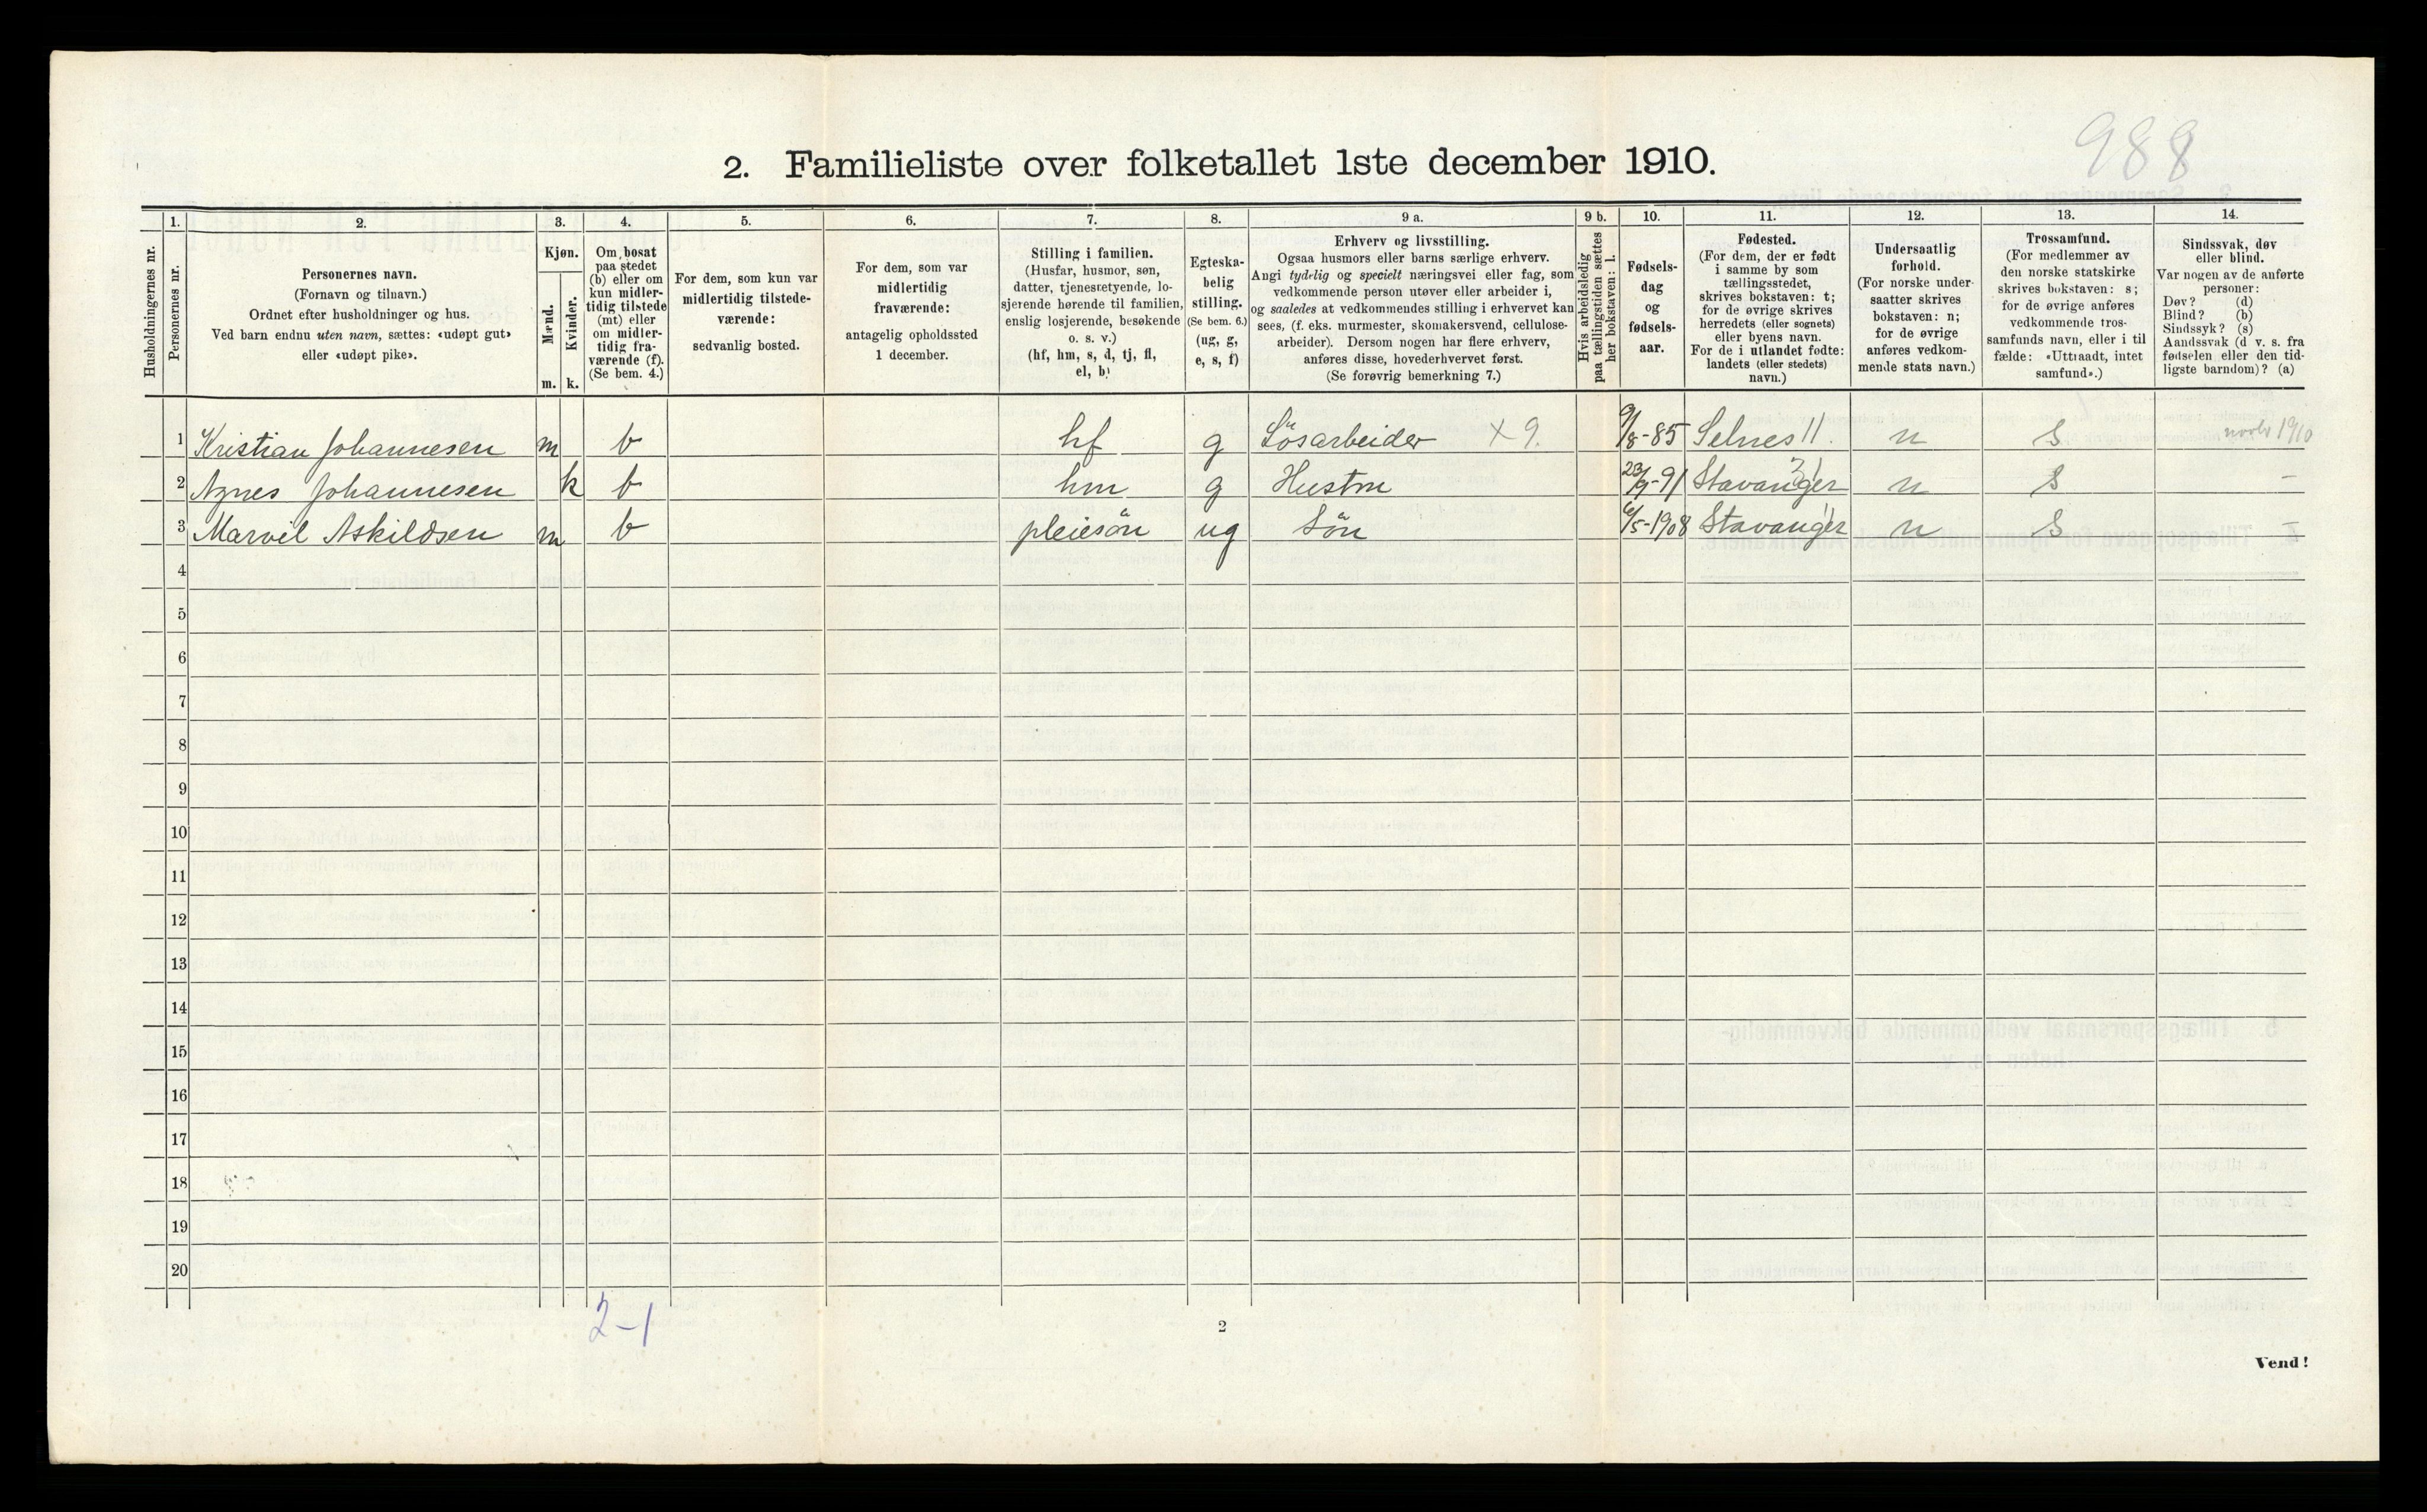 988
2. Familieliste over folketallet 1ste december 1910.
Husholdningernes nr.
1.
Personernes nr.
2.
Personernes navn.
(Fornavn og tilnavn.)
Ordnet efter husholdninger og hus.
Ved barn endnu uten navn, sættes: «udøpt gut»
eller «udøpt pike».
3.
Kjøn.
Mænd.
Kvinder.
m. k.
4.
Om bosat
paa stedet
(b) eller om
kun midler-
tidig tilstede
(mt) eller
om midler-
tidig fra-
værende (f).
(Se bem. 4.)
5.
For dem, som kun var
midlertidig tilstede-
værende:
sedvanlig bosted.
6.
For dem, som var
midlertidig
fraværende:
antagelig opholdssted
1 december.
7.
Stilling i familien.
(Husfar, husmor, søn,
datter, tjenestetyende, lo-
sjerende hørende til familien,
enslig losjerende, besøkende
o. s. v.)
(hf, hm, s, d, tj, fl,
el, b)
8.
Egteska-
belig
stilling.
(Se bem. 6.)
(ug, g,
e, s, f)
9 a.
Erhverv og livsstilling.
Ogsaa husmors eller barns særlige erhverv.
Angi tydelig og specielt næringsvei eller fag, som
vedkommende person utøver eller arbeider i,
og saaledes at vedkommendes stilling i erhvervet kan
sees, (f. eks. murmester, skomakersvend, cellulose-
arbeider). Dersom nogen har flere erhverv,
anføres disse, hovederhvervet først.
(Se forøvrig bemerkning 7.)
9 b.
Hvis arbeidsledig
paa tællingstiden sættes
her bokstaven: l.
10.
Fødsels-
dag
og
fødsels-
aar.
11.
Fødested.
(For dem, der er født
i samme by som
tællingsstedet,
skrives bokstaven: t;
for de øvrige skrives
herredets (eller sognets)
eller byens navn.
For de i utlandet fødte:
landets (eller stedets)
navn.)
12.
Undersaatlig
forhold.
(For norske under-
saatter skrives
bokstaven: n;
for de øvrige
anføres vedkom-
mende stats navn.)
13.
Trossamfund.
(For medlemmer av
den norske statskirke
skrives bokstaven: s;
for de øvrige anføres
vedkommende tros-
samfunds navn, eller i til
fælde: «Uttraadt, intet
samfund».)
14.
Sindssvak, døv
eller blind.
Var nogen av de anførte
personer:
Døv? (d)
Blind? (b)
Sindssyk? (s)
Aandssvak (d. v. s. fra
fødselen eller den tid-
ligste barndom)? (a)
1 Kristian Johannesen m b hf g Løsarbeider X 9. 9/8-85 Selnes 11. n S 1910
2 Agnes Johannesen k b hm g Hustru 23/9-91 Stavanger n S -
3 Marvel Askildsen m b pleiesön ug Sön 6/5-1908 Stavanger n S -
4
5
6
7
8
9
10
11
12
13
14
15
16
17
18
19
20
2-1
2
Vend!